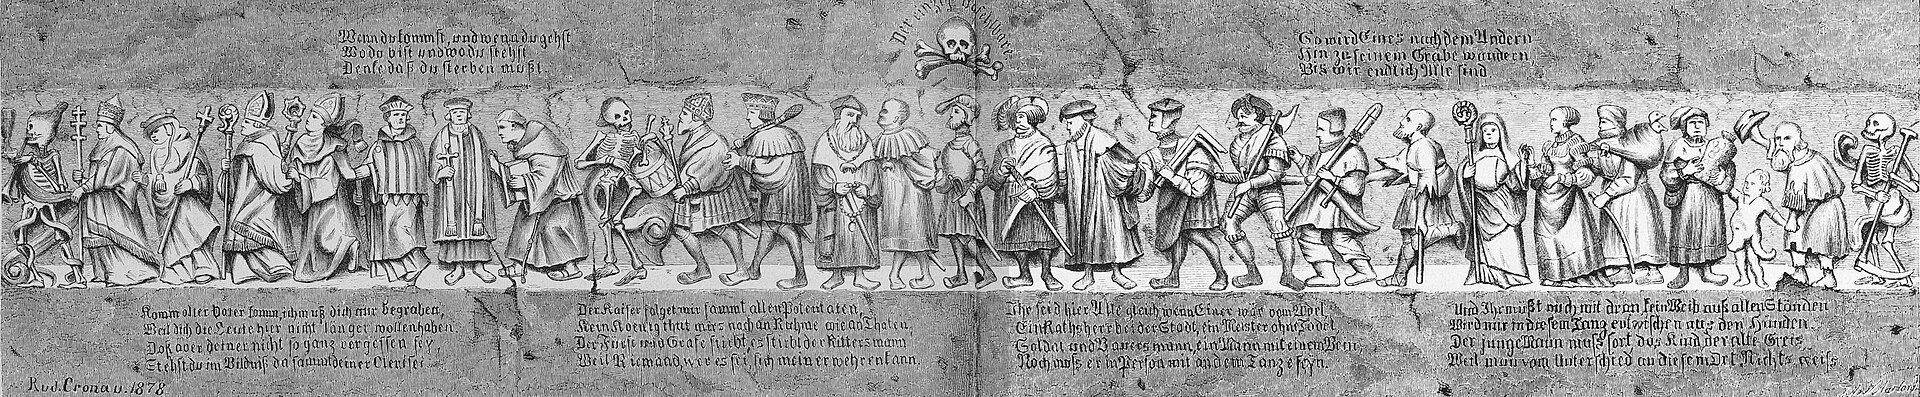 Wenn du kommst, und wenn du gehst
Wo du bist und wo du stehst
Denke daß du sterben mußt.
So wird Eines nach dem Andern
Hin zu seinem Grabe wandern
Bis wir endlich Alle sind
Komm alter Vater komm, ich muß dich nur begraben,
Weil dich die Leute hier nicht länger wollen haben.
Doß aber deiner nicht so ganz vergessen sey
Stehst du im Bildniß da sammt deiner Clerisei.
Der Kaiser folget mir sammt allen Potentaten,
Kein Koenig thut mirs nach an Ruhme wie an Thaten,
Der Fürst und Grafe sticht, es stirbt der Rittersmann
Weil Niemand, wer es sei, sich meiner wehren kann.
Ihr seid hier Alle gleich, wenn Einer wär vom Adel
Ein Rathsherr bei der Stadt, ein Meister ohn Tadel,
Soldat und Bauersmann, ein Mann mit einem Bein,
Noch muß er in Person mit an dem Tanze seyn.
Und Ihr müßt auch mit dran kein Weib aus allen Ständen
Wird mir in diesem Tanz entwischen aus den Händen.
Der junge Mann muß fort das Kind der alte Greis
Weil man vom Unterschied an diesem Ort Nichts weiss
Rud. Cronau. 1878